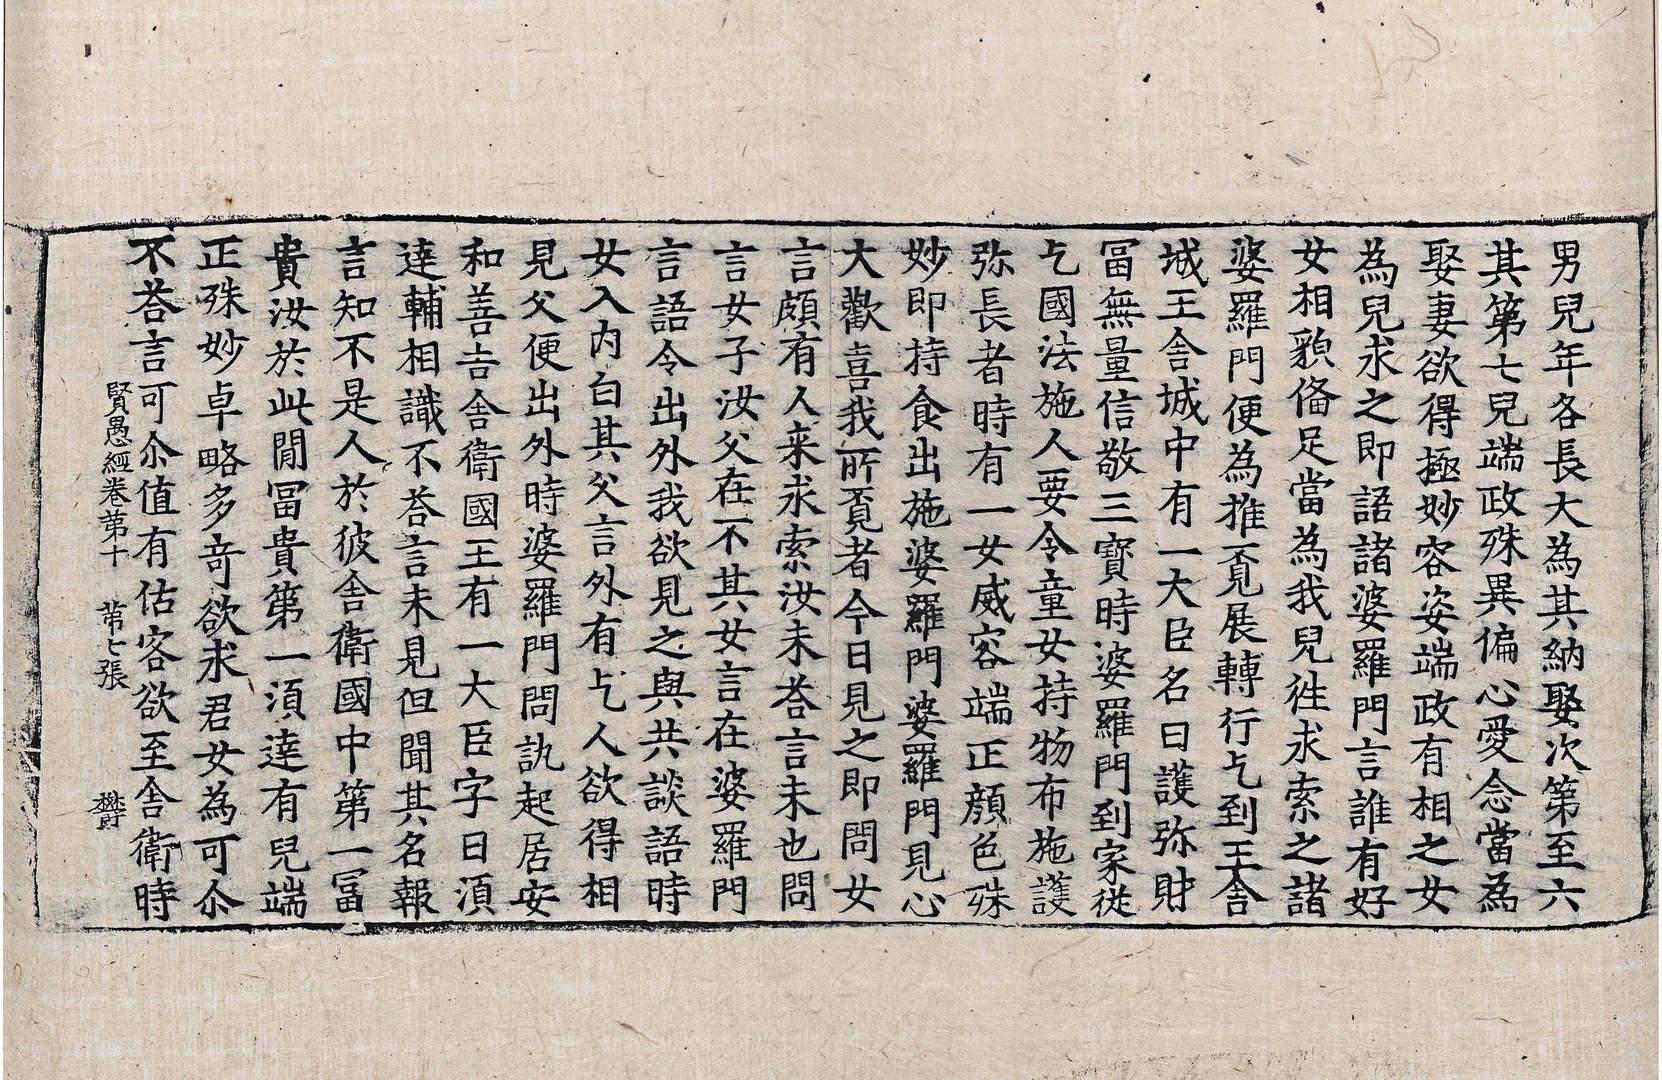 男兒年各長大為其納娶次第至六
其第七兒端政殊異偏心愛念當為
娶妻欲得極妙容姿端政有相之女
為兒求之即語諸婆羅門言誰有好
女相貌俻足當為我兒徃求索之諸
婆羅門便為推覔展轉行乞到王舎
城王舎城中有一大臣名曰護弥財
冨無量信敬三寳時婆羅門到家從
乞國法施人要令童女持物布施護
弥長者時有一女威容端正顔色殊
妙即持食出施婆羅門婆羅門見心
大歡喜我所覔者今日見之即問女
言頗有人来求索汝未荅言未也問
言女子汝父在不其女言在婆羅門
言語令出外我欲見之與共談語時
女入内白其父言外有乞人欲得相
見父便出外時婆羅門問訊起居安
和善吉舎衛國王有一大臣字曰湏
達輔相識不荅言未見但聞其名報
言知不是人於彼舎衛國中第一冨
貴汝於此閒冨貴第一湏達有兒端
正殊妙卓略多竒欲求君女為可尒
不荅言可尒值有估客欲至舎衛時
賢愚經卷第十　第七張　欝